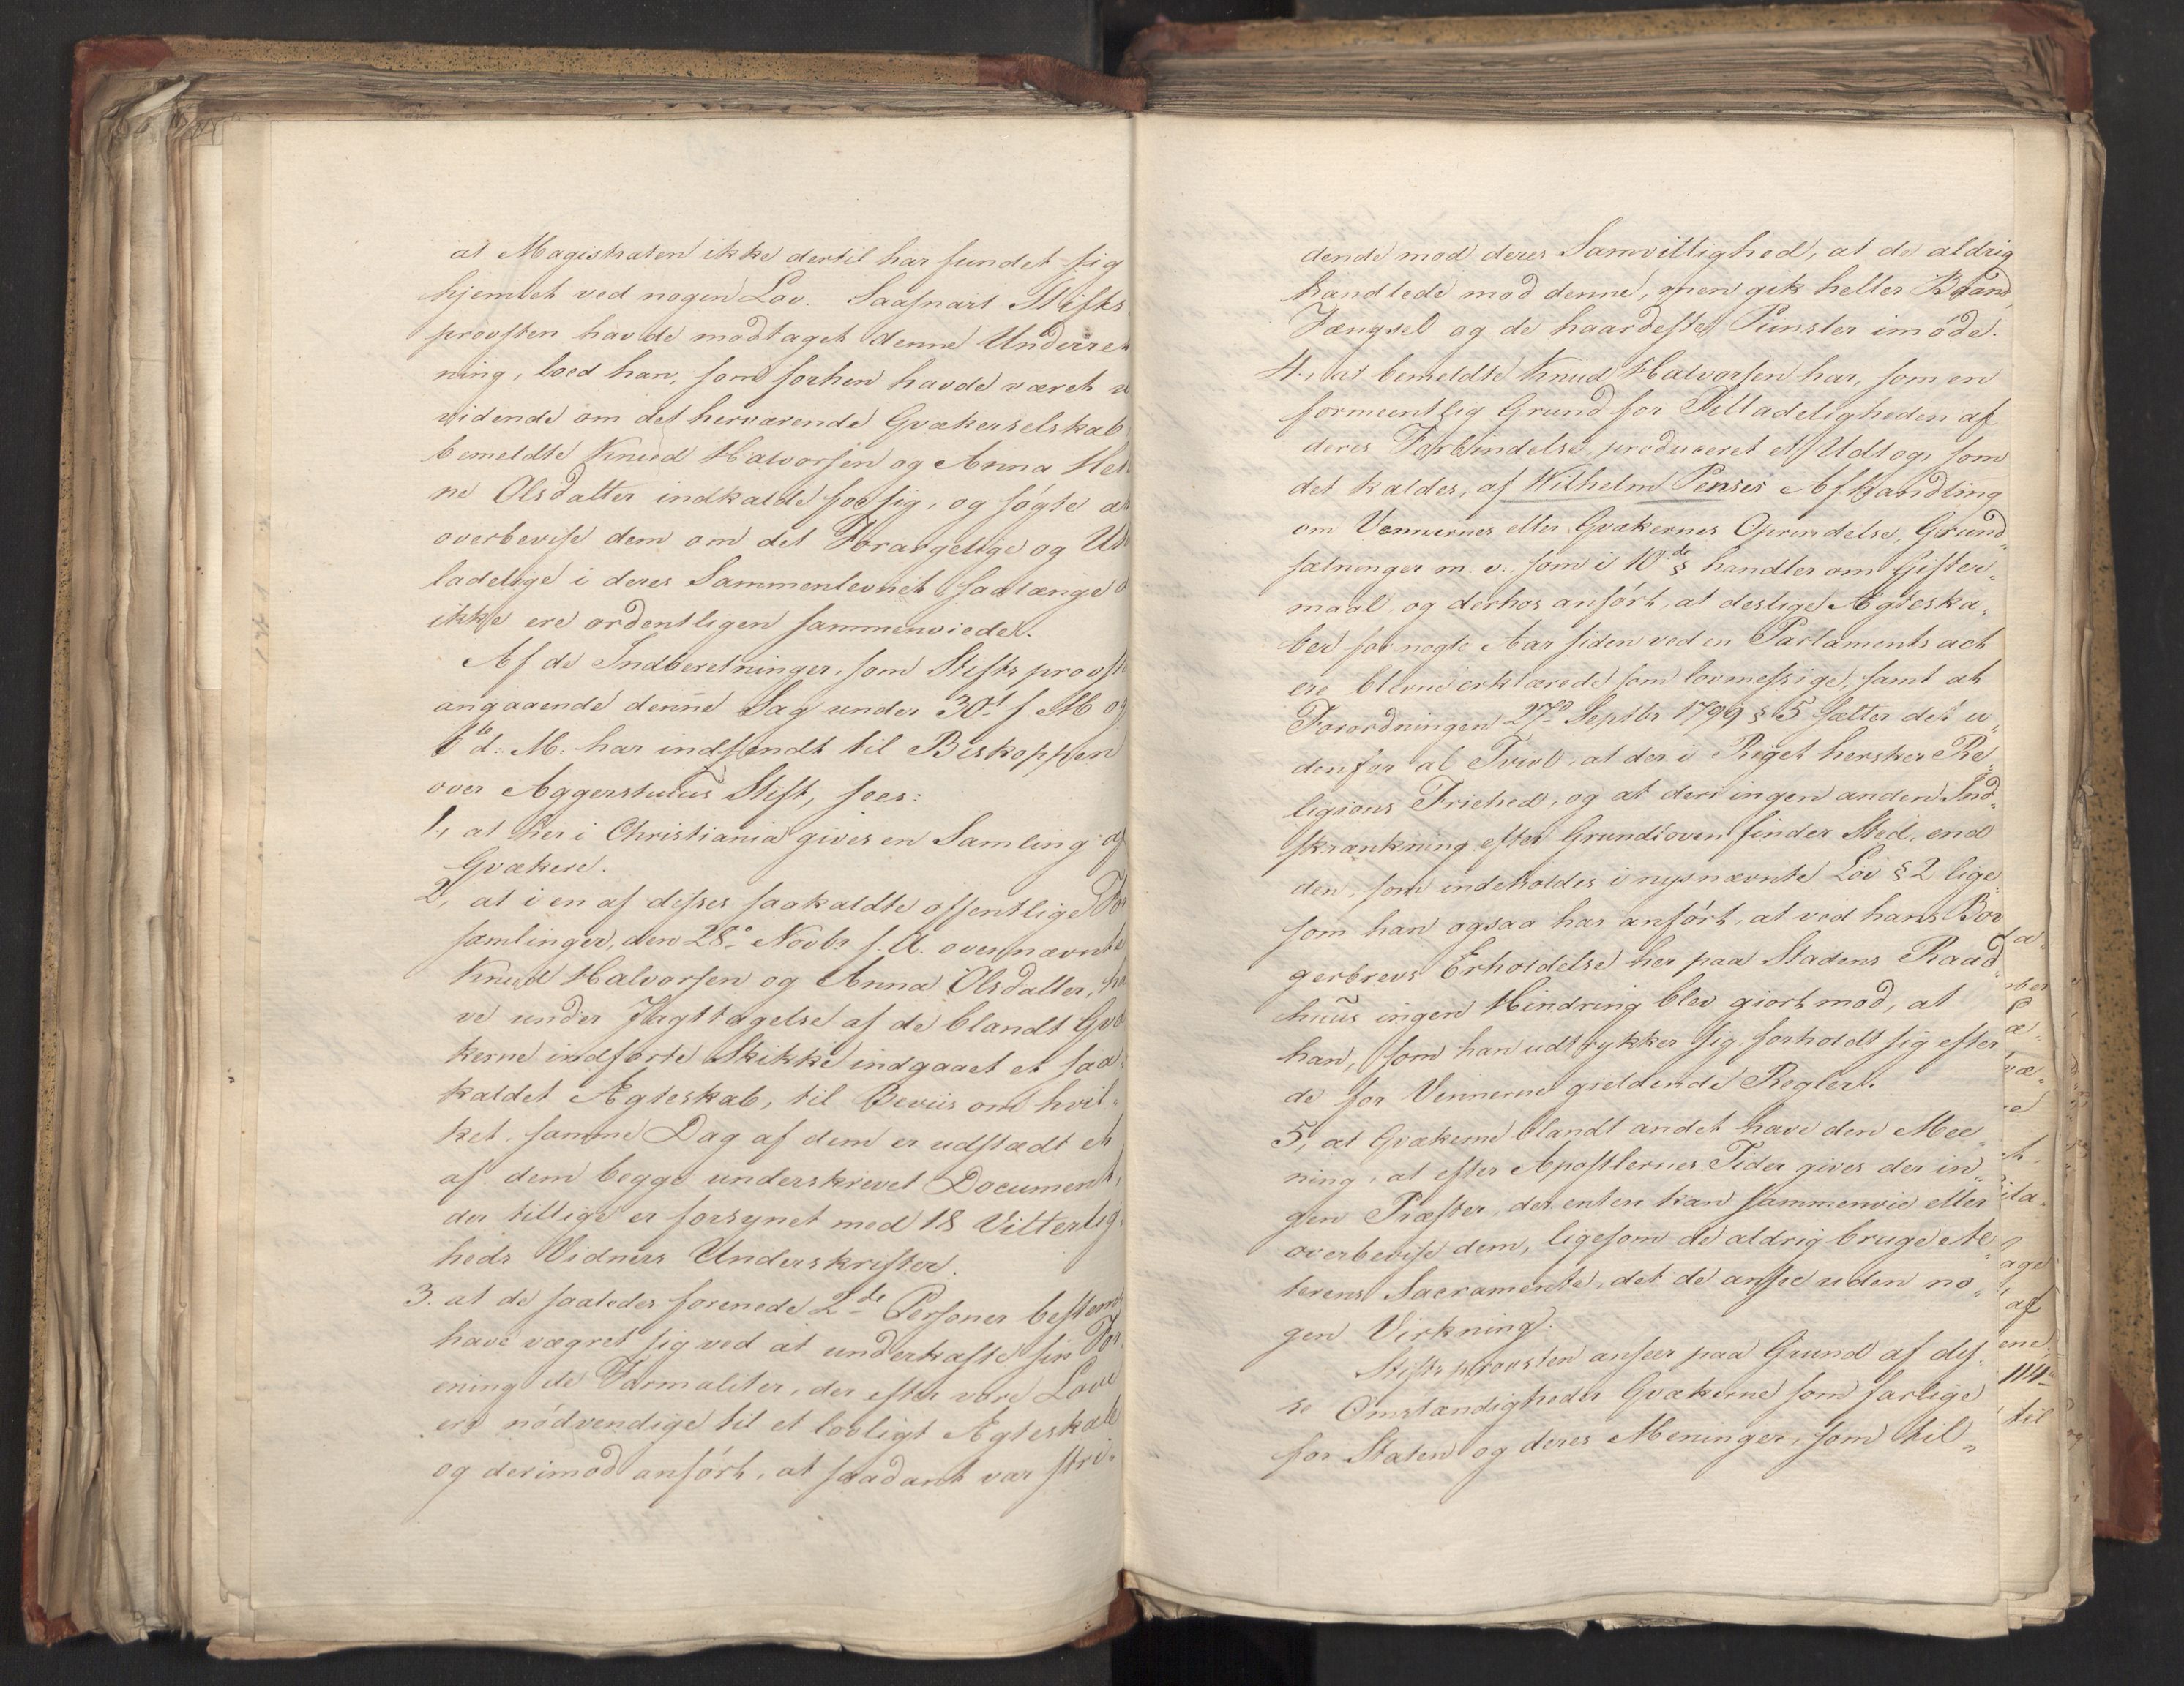 at Magistraten ikke dertil har fundet sig
hjemlet ved nogen Lov. Saasnart Stifts
provsten havde modtaget denne Underret
ning, lod han, som forhen havde været u
vidende om det herværende Qvækerselskab
bemeldte Knud Halvorsen og Anna Hele
ne Olsdatter indkalde for sig, og søgte at
overbevise dem om det Forargelige og Util
ladelige i deres Sammenlevnet saalænge d
ikke ere ordentligen sammenviede.
Af de Indberetninger, som Stiftsprovste
angaaende denne Sag under 30d f. M og
6te d: M: har indsendt til Biskoppen
over Aggershuus Stift, sees:
1., at her i Christiania gives en Samling af
Qvækere.
2, at i en af disses saakaldte offentlige For
samlinger, den 28de Novbr f. A. overnævnte
Knud Halvorsen og Anna Olsdatter, ha
ve under Jagttagelse af de blandt Qvæ
kerne indførte Skikke indgaaet et saa-
kaldet Ægteskab, til Beviis om hvil-
ket, samme Dag af dem er udstædt et
af dem begge underskrevet Document,
der tillige er forsynet med 18 Vitterlig-
heds Vidners Underskrifter.
3. at de saaledes forenede 2de Personer bestemt
have vægret sig ved at underkaste sin For-
ening de Formaliter, der efter vore Love
ere nödvendige til et lovligt Ægteskab
og derimod anført, at saadant var stri-
dende mod deres Samvittighed, at de aldrig
handlede mod denne, men gik heller Baand,
Fængsel og de haardeste Punsler imøde.
4., at bemeldte Knud Halvorsen har, som en
formeentlig Grund for Tilladeligheden af
deres Forbindelse, produceret et Udtog, som
det kaldes, af Wilhelm Penns Afhandling
om Vennernes eller Qvækernes Oprindelse, Grund-
sætninger m. v. som i 10de § handler om Gifter-
maal, og derhos anført, at deslige Ægteska-
ber for nogle Aar siden ved en Parlaments act
ere blevne erklærede som lovmessige, samt at
Forordningen 27de Septbr 1799 § 5 sætter det u-
denfor al Tvivl, at der i Riget hersker Re-
ligions Friehed, og at deri ingen anden Ind-
skrænkning efter Grundloven finder Sted, end
den, som indeholdes i nysnævnte Lov § 2 lige-
som han ogsaa har anført, at ved hans Bor
gerbrevs Erholdelse her paa Stadens Raad
huus ingen Hindring blev giort mod, at
han, som han udtrykker sig, forholdt sig efter
de for Vennerne gieldende Regler.
5, at Qvækerne blandt andet have den Mee-
ning, at efter Apostlernes Tider gives der in-
gen Præster, der enten kan sammenvie eller
overbevise dem, ligesom de aldrig bruge Al-
terens Sacramente, det de ansee uden no-
gen Virkning.
Stiftsprovsten anseer paa Grund af dis-
se Omstændigheder Qvækerne som farlige
for Staten og deres Meninger, som til-